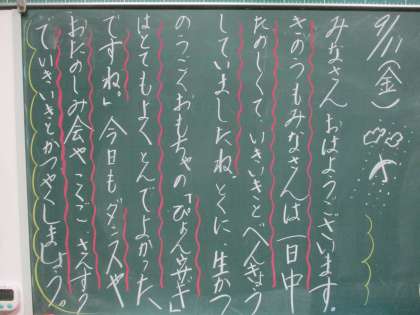 9/11(金)
みなさん おはようございます。
きのうもみなさんは一日中
たのしくて、いきいきとべんきょう
していましたね。とくに、生かつ
のうごくおもちゃの「ぴょんウサギ」
はとてもよくとんでよかった
ですね。」今日もダンスや
おたのしみ会やこくご、さんすう
でいきいきとかつやくしましょう。